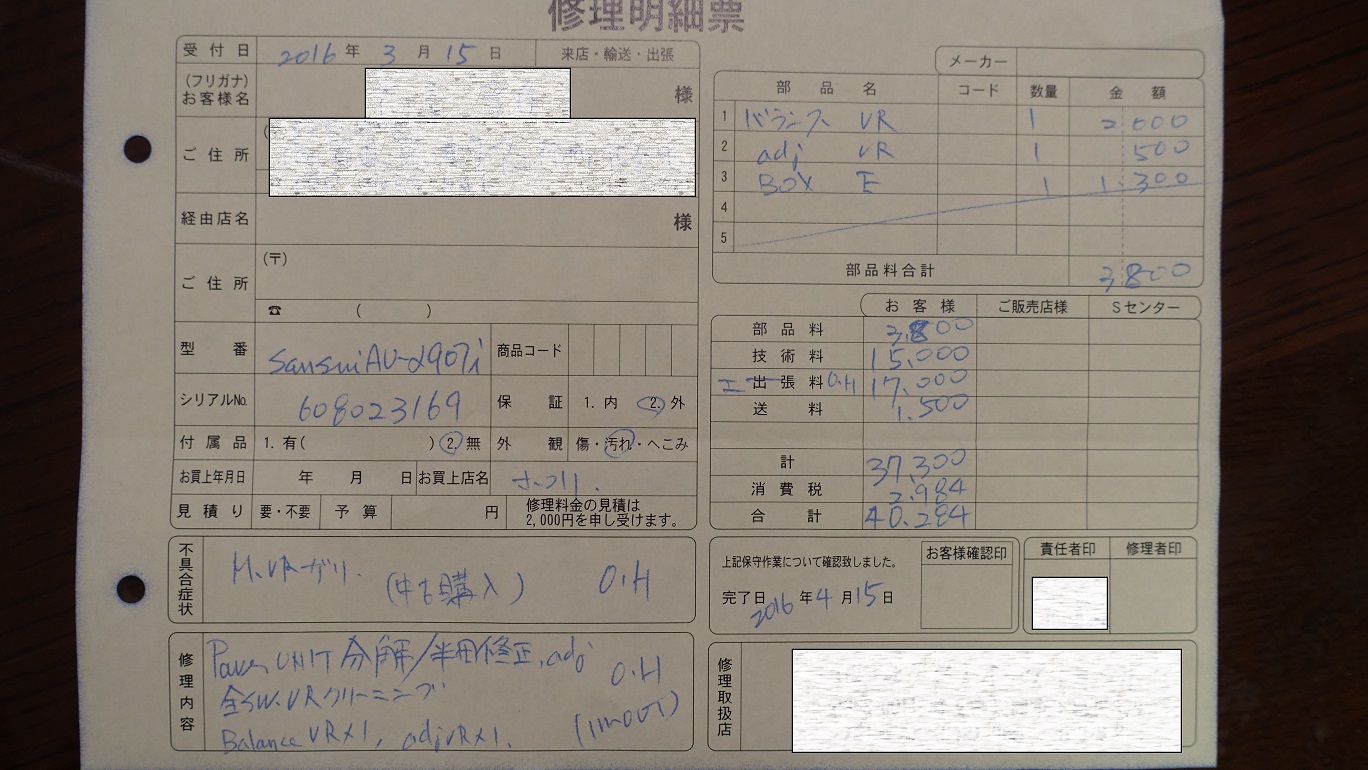 修理明細票
受付日 2016年 3月 15日 来店・輸送・出張
(フリガナ)
お客様名 様
ご住所
経由店名 様
ご住所 (〒)
☎ ( )
型番 Sansui AU-α907i 商品コード
シリアルNo. 608023169 保証 1. 内 2. 外
付属品 1. 有( ) 2. 無 外観 傷・汚れ・へこみ
お買上年月日 年 月 日 お買上店名
見積り 要・不要 予算 円 修理料金の見積は
2,000円を申し受けます。
不具合症状 M.VRガリ. (中古購入) O.H
修理内容 Power UNIT 分解/半田修正, adj O.H
全SW.VRクリーニング
Balance VR×1, adj VR×1.
メーカー
部品名 コード 数量 金額
1 バランス VR 1 2000
2 adj VR 1 500
3 BOX E 1 1.300
4
5
部品料合計 3,800
お客様 ご販売店様 Sセンター
部品料 3,800
技術料 15,000
出張料 O.H 17,000
送料 1.500
計 37,300
消費税 2,984
合計 40.284
上記保守作業について確認致しました。
完了日 2016年 4月 15日
お客様確認印
責任者印 修理者印
修理取扱店